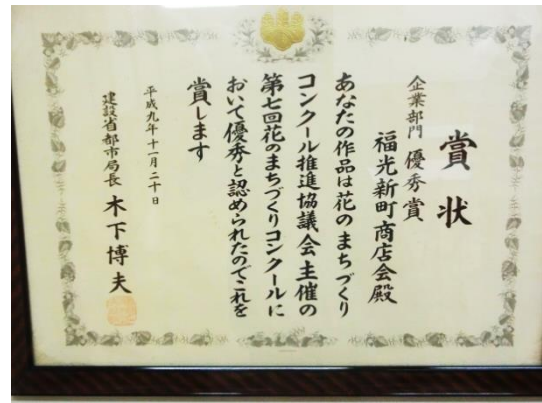 賞状
企業部門 優秀賞
福光新町商店会殿
あなたの作品は花のまちづくり
コンクール推進協議会主催の
第七回花のまちづくりコンクールに
おいて優秀と認められたのでこれを
賞します
平成九年十一月二十日
建設省都市局長 木下博夫